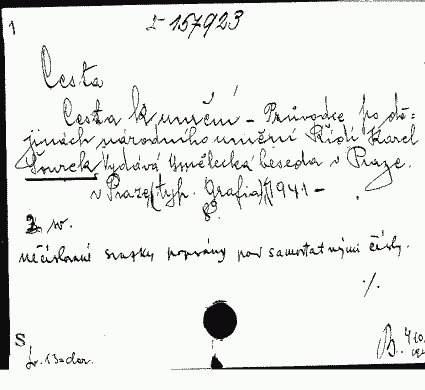 1
157923
Cesta
Cesta k umění - Průvodce po dě-
jinách národního umění Řídí Karel
Šourek Vydává Umělecká beseda v Praze.
v Praze (typ. Grafia) 1941 -
8°.
w.
nečíslované svazky popsány pod samostatnými čísly.
./.
S
B.